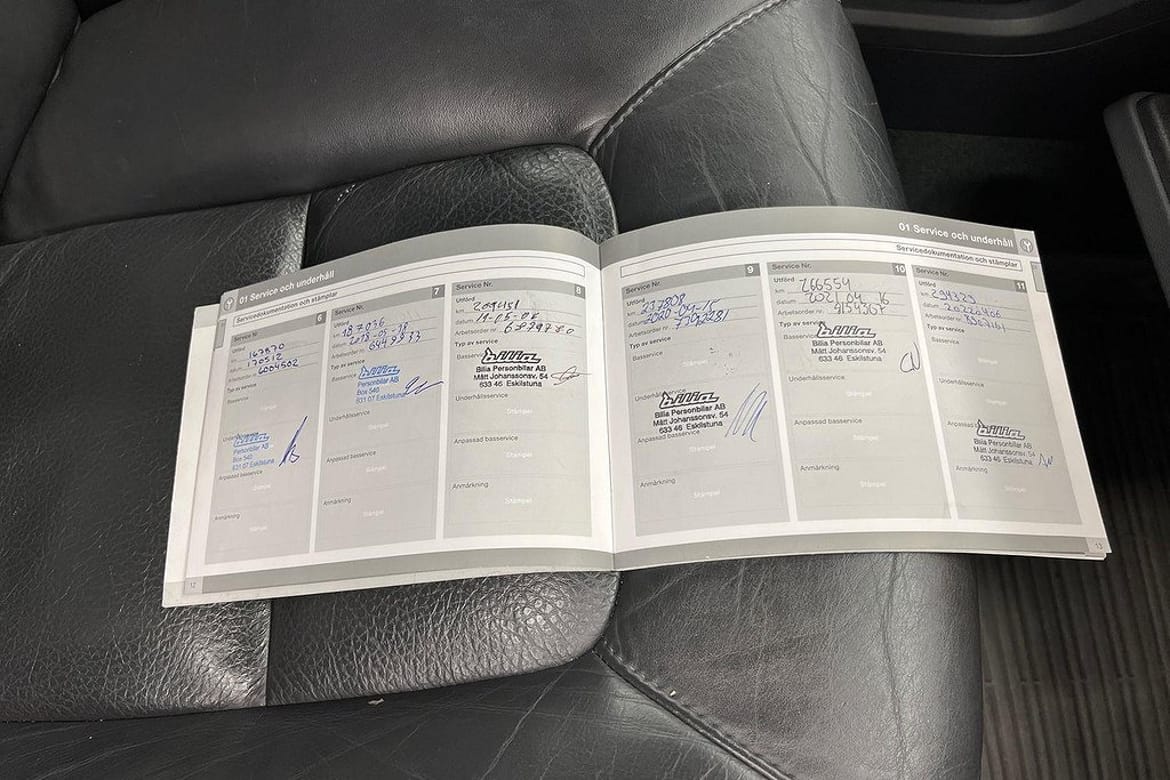 01 Service och underhåll
Servicedokumentation och stämplar
Service Nr. 6
Utförd
km 167870
datum 170512
Arbetsorder nr. 6004502
Typ av service
Basservice
Stämpel
bilia
Personbilar AB
Box 540
631 07 Eskilstuna
Anpassad basservice
Stämpel
Anmärkning
Stämpel
12
Service Nr. 7
Utförd
km 187036
datum
Arbetsorder nr.
Typ av service
Basservice
bilia
Personbilar AB
Box 540
631 07 Eskilstuna
Underhållsservice
Stämpel
Anpassad basservice
Stämpel
Anmärkning
Stämpel
Service Nr. 8
Utförd
km
datum
Arbetsorder nr.
Typ av service
Basservice
bilia
Bilia Personbilar AB
Mått Johanssonsv. 54
633 46 Eskilstuna
Underhållsservice
Stämpel
Anpassad basservice
Stämpel
Anmärkning
Stämpel
01 Service och underhåll
Servicedokumentation och stämplar
Service Nr. 9
Utförd
km 237808
datum 2020-04-15
Arbetsorder nr.
Typ av service
Basservice
Underhållsservice
bilia
Bilia Personbilar AB
Mått Johanssonsv. 54
633 46 Eskilstuna
Anpassad basservice
Stämpel
Anmärkning
Stämpel
Service Nr. 10
Utförd
km 266554
datum 2021 04 16
Arbetsorder nr. 9154367
Typ av service
Basservice
bilia
Bilia Personbilar AB
Mått Johanssonsv. 54
633 46 Eskilstuna
Underhållsservice
Stämpel
Anpassad basservice
Stämpel
Anmärkning
Stämpel
Service Nr. 11
Utförd
km 294329
datum 20220406
Arbetsorder nr.
Typ av service
Basservice
Stämpel
Underhållsservice
Stämpel
bilia
Bilia Personbilar AB
Mått Johanssonsv. 54
633 46 Eskilstuna
Anmärkning
Stämpel
13